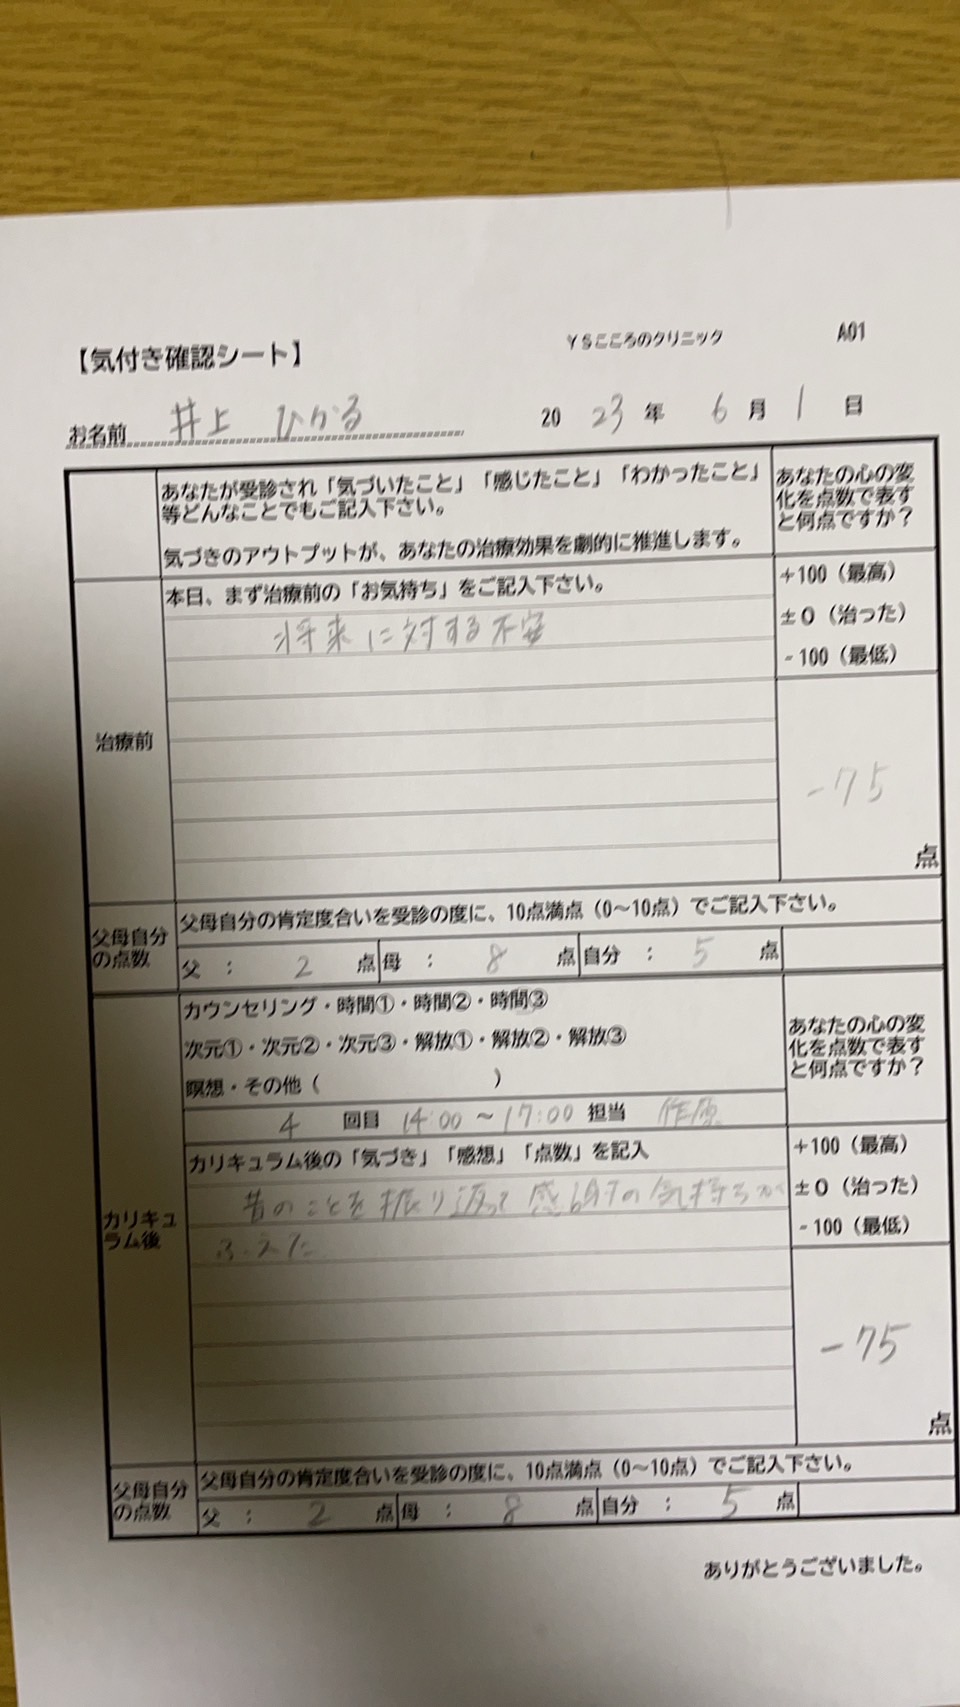 【気付き確認シート】
YSこころのクリニック
A01
お名前 井上 ひかる
2023年 6月 1日
あなたが受診され「気づいたこと」「感じたこと」「わかったこと」
等どんなことでもご記入下さい。
気づきのアウトプットが、あなたの治療効果を劇的に推進します。
あなたの心の変
化を点数で表す
と何点ですか？
治療前
本日、まず治療前の「お気持ち」をご記入下さい。
将来に対する不安
+100（最高）
±0（治った）
-100（最低）
-75
点
父母自分
の点数
父母自分の肯定度合いを受診の度に、10点満点（0～10点）でご記入下さい。
父 ： 2 点 母 ： 8 点 自分 ： 5 点
カウンセリング・時間①・時間②・時間③
次元①・次元②・次元③・解放①・解放②・解放③
瞑想・その他（ ）
あなたの心の変
化を点数で表す
と何点ですか？
4 回目 14:00 ～ 17:00 担当 作原
カリキュ
ラム後
カリキュラム後の「気づき」「感想」「点数」を記入
昔のことを振り返って感謝の気持ちが
ふえた
+100（最高）
±0（治った）
-100（最低）
-75
点
父母自分
の点数
父母自分の肯定度合いを受診の度に、10点満点（0～10点）でご記入下さい。
父 ： 2 点 母 ： 8 点 自分 ： 5 点
ありがとうございました。